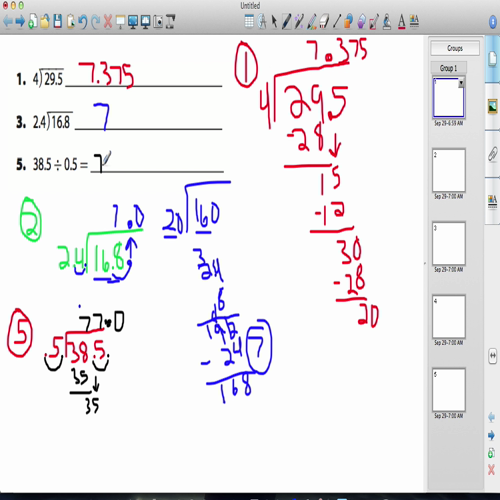 Untitled
1. 4)29.5 7.375
3. 2.4)16.8 7
5. 38.5 ÷ 0.5 = 7
1
7.375
4)29.5
-28
15
-12
30
-28
20
2
7.0
2.4)16.8
20)160
3
24
6
192
- 24 7
168
5
77.0
.5)38.5
35
35
Groups
Group 1
Sep 29-6:59 AM
2
Sep 29-7:00 AM
3
Sep 29-7:00 AM
4
Sep 29-7:00 AM
5
Sep 29-7:00 AM